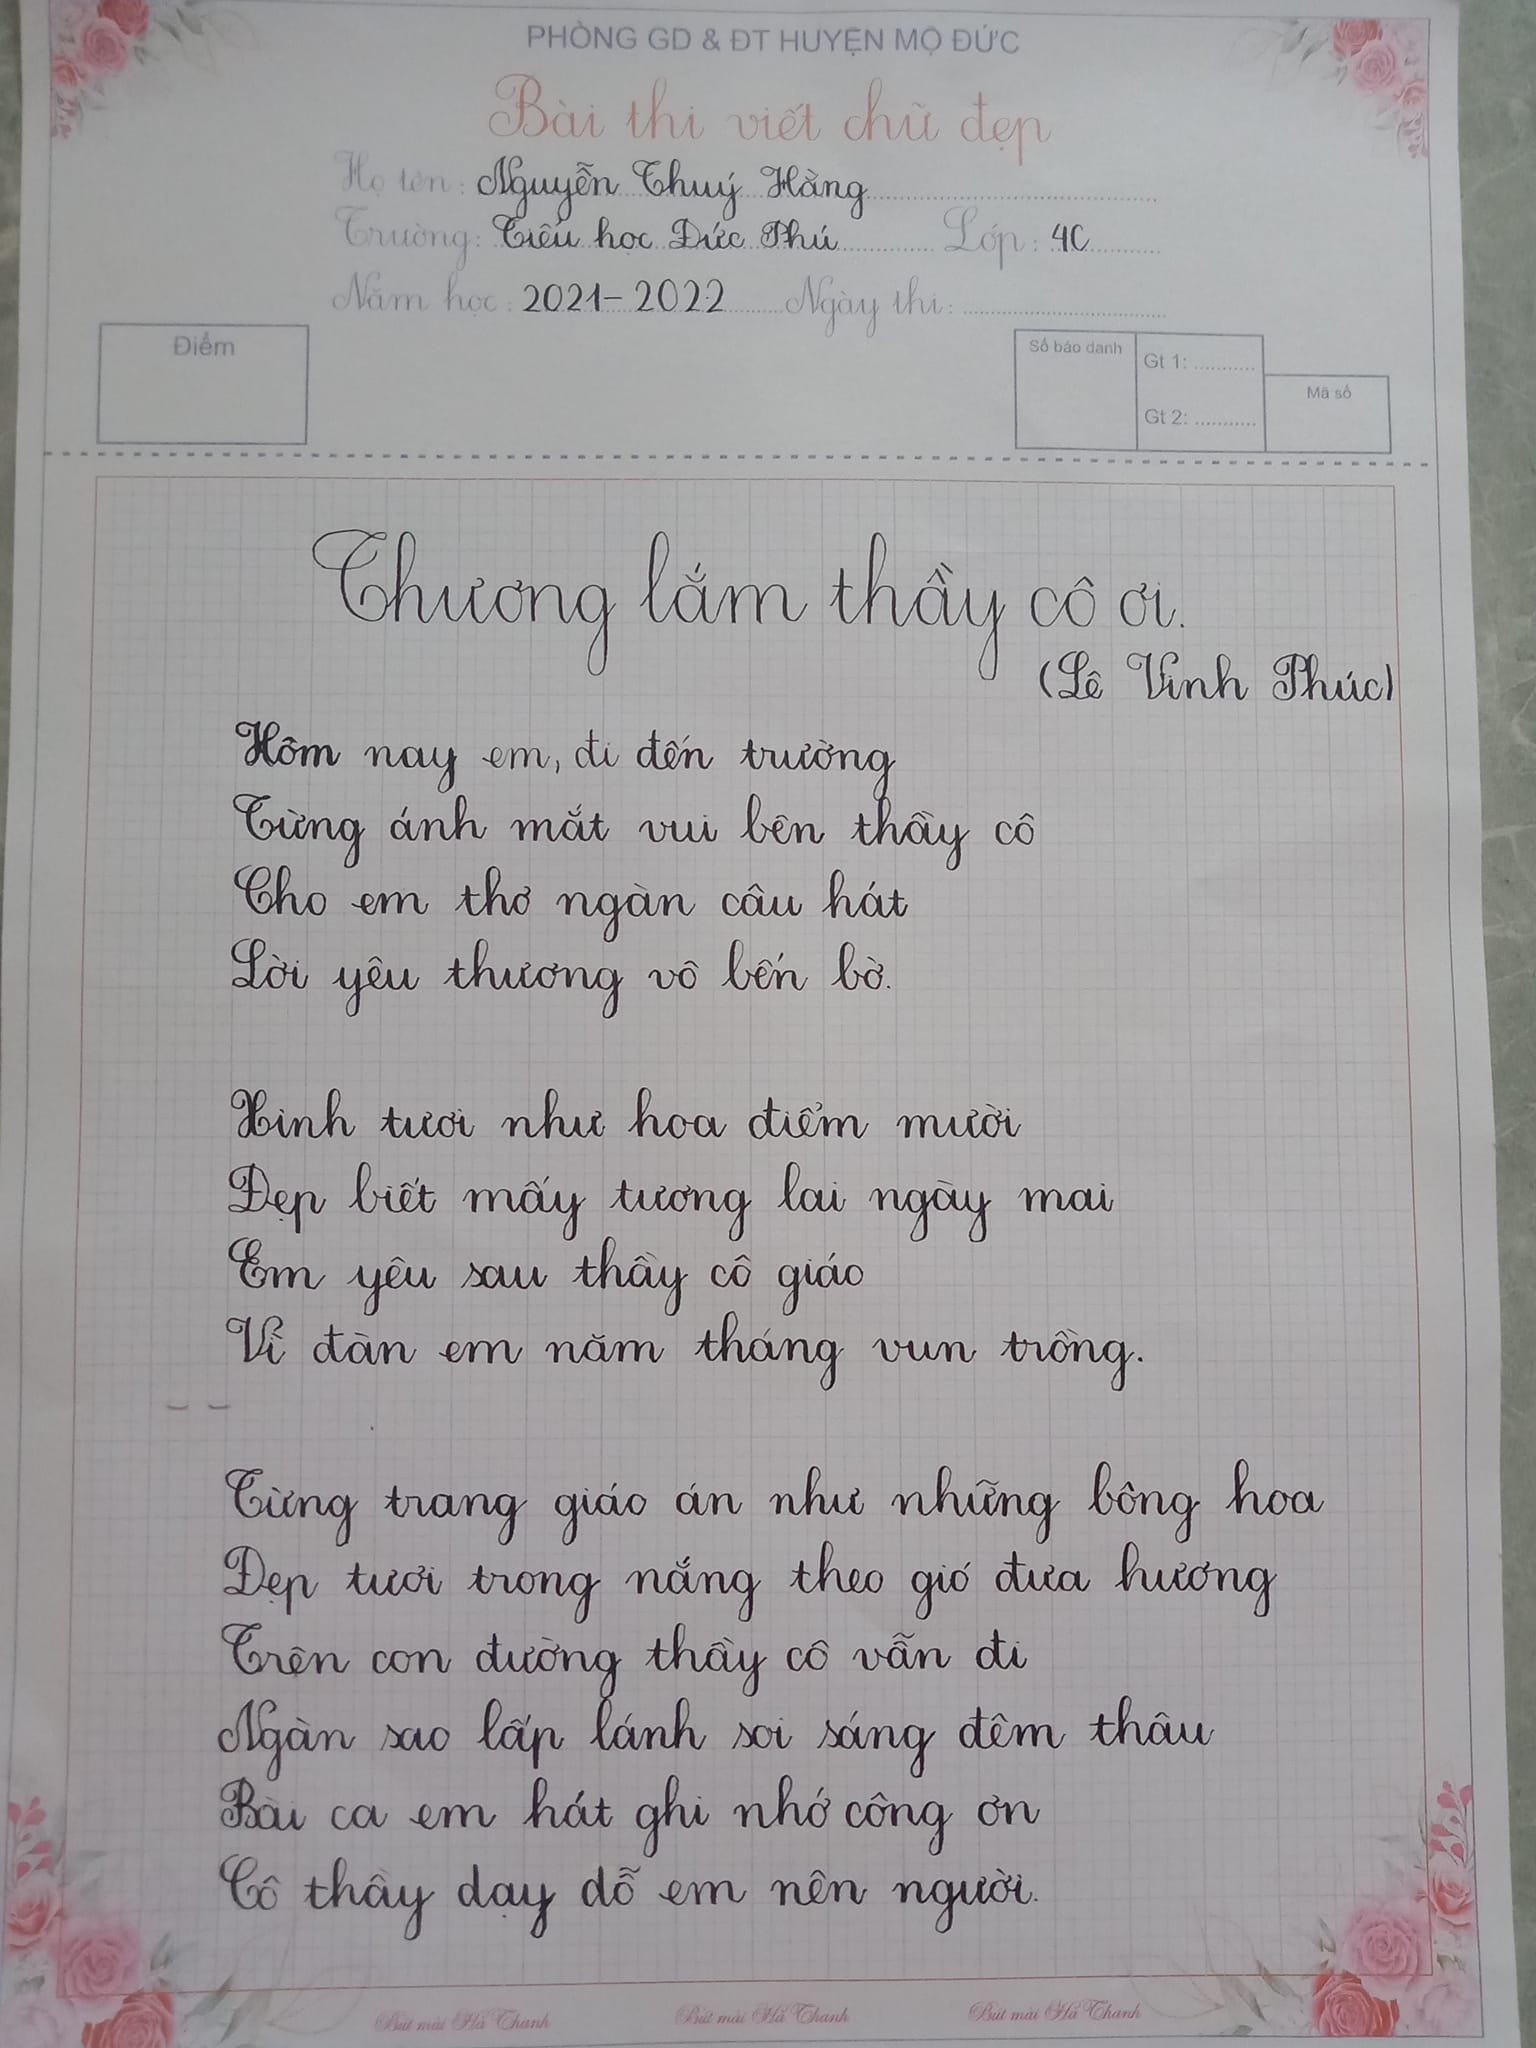 PHÒNG GD & ĐT HUYỆN MỘ ĐỨC
Bài thi viết chữ đẹp
Họ tên: Nguyễn Thuý Hằng
Trường: Tiểu học Đức Phú Lớp: 4C
Năm học: 2021-2022 Ngày thi:
Điểm
Số báo danh
Gt 1:
Gt 2:
Mã số
Thương lắm thầy cô ơi.
(Lê Vinh Phúc)
Hôm nay em, đi đến trường
Từng ánh mắt vui bên thầy cô
Cho em thơ ngàn câu hát
Lời yêu thương vô bến bờ.
Xinh tươi như hoa điểm mười
Đẹp biết mấy tương lai ngày mai
Em yêu sau thầy cô giáo
Vì đàn em năm tháng vun trồng.
Từng trang giáo án như những bông hoa
Đẹp tươi trong nắng theo gió đưa hương
Trên con đường thầy cô vẫn đi
Ngàn sao lấp lánh soi sáng đêm thâu
Bài ca em hát ghi nhớ công ơn
Cô thầy dạy dỗ em nên người.
Bút mài Hà Thanh Bút mài Hà Thanh Bút mài Hà Thanh